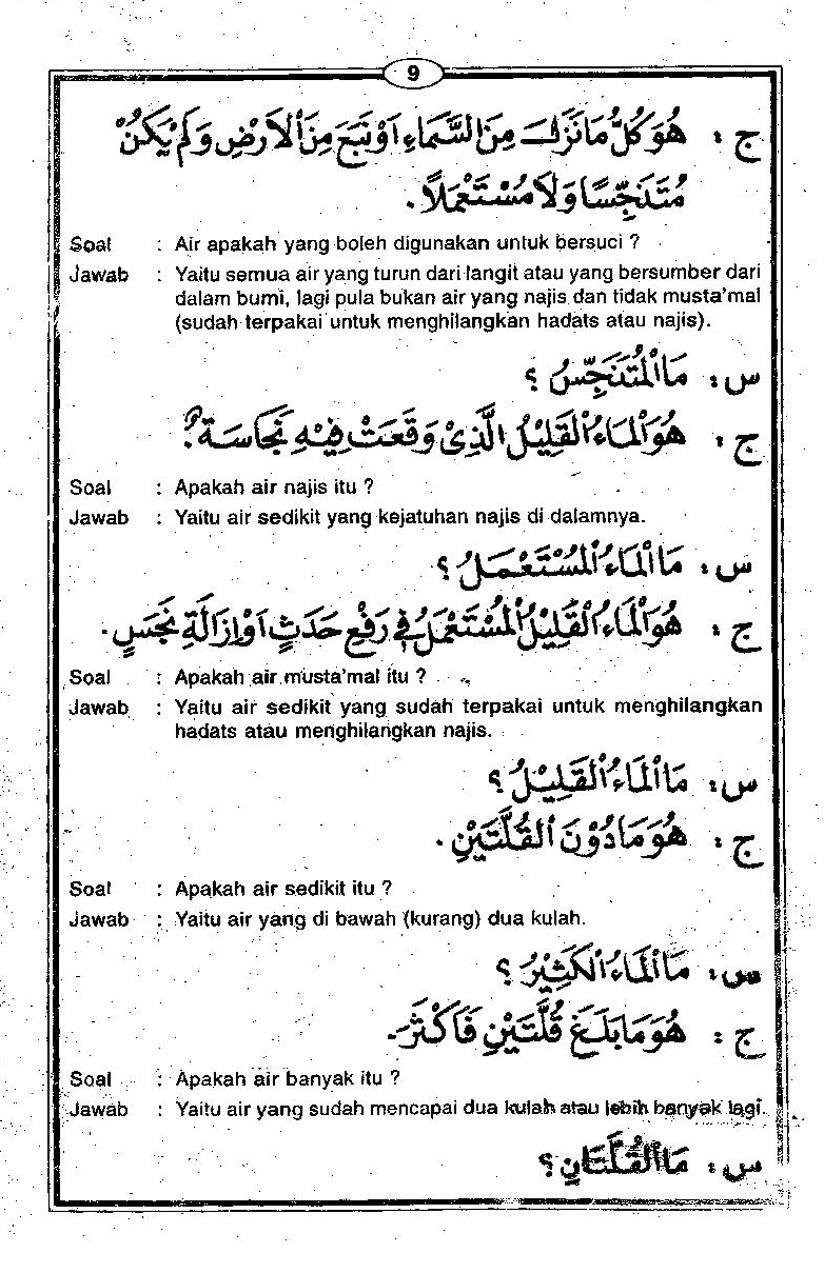 9
ج : هُوَ كُلُّ مَا نَزَلَ مِنَ السَّمَاءِ اَوْ نَبَعَ مِنَ الْاَرْضِ وَلَمْ يَكُنْ
مُتَنَجِّسًا وَلَا مُسْتَعْمَلًا.
Soal : Air apakah yang boleh digunakan untuk bersuci ?
Jawab : Yaitu semua air yang turun dari langit atau yang bersumber dari
dalam bumi, lagi pula bukan air yang najis dan tidak musta'mal
(sudah terpakai untuk menghilangkan hadats atau najis).
س : مَا الْمُتَنَجِّسُ ؟
ج : هُوَ الْمَاءُ الْقَلِيْلُ الَّذِىْ وَقَعَتْ فِيْهِ نَجَاسَةٌ.
Soal : Apakah air najis itu ?
Jawab : Yaitu air sedikit yang kejatuhan najis di dalamnya.
س : مَا الْمَاءُ الْمُسْتَعْمَلُ ؟
ج : هُوَ الْمَاءُ الْقَلِيْلُ الْمُسْتَعْمَلُ فِى رَفْعِ حَدَثٍ اَوْ اِزَالَةِ نَجَسٍ.
Soal : Apakah air musta'mal itu ?
Jawab : Yaitu air sedikit yang sudah terpakai untuk menghilangkan
hadats atau menghilangkan najis.
س : مَا الْمَاءُ الْقَلِيْلُ ؟
ج : هُوَ مَا دُوْنَ الْقُلَّتَيْنِ.
Soal : Apakah air sedikit itu ?
Jawab : Yaitu air yang di bawah (kurang) dua kulah.
س : مَا الْمَاءُ الْكَثِيْرُ ؟
ج : هُوَ مَا بَلَغَ قُلَّتَيْنِ فَاَكْثَرَ.
Soal : Apakah air banyak itu ?
Jawab : Yaitu air yang sudah mencapai dua kulah atau lebih banyak lagi.
س : مَا الْقُلَّتَانِ ؟